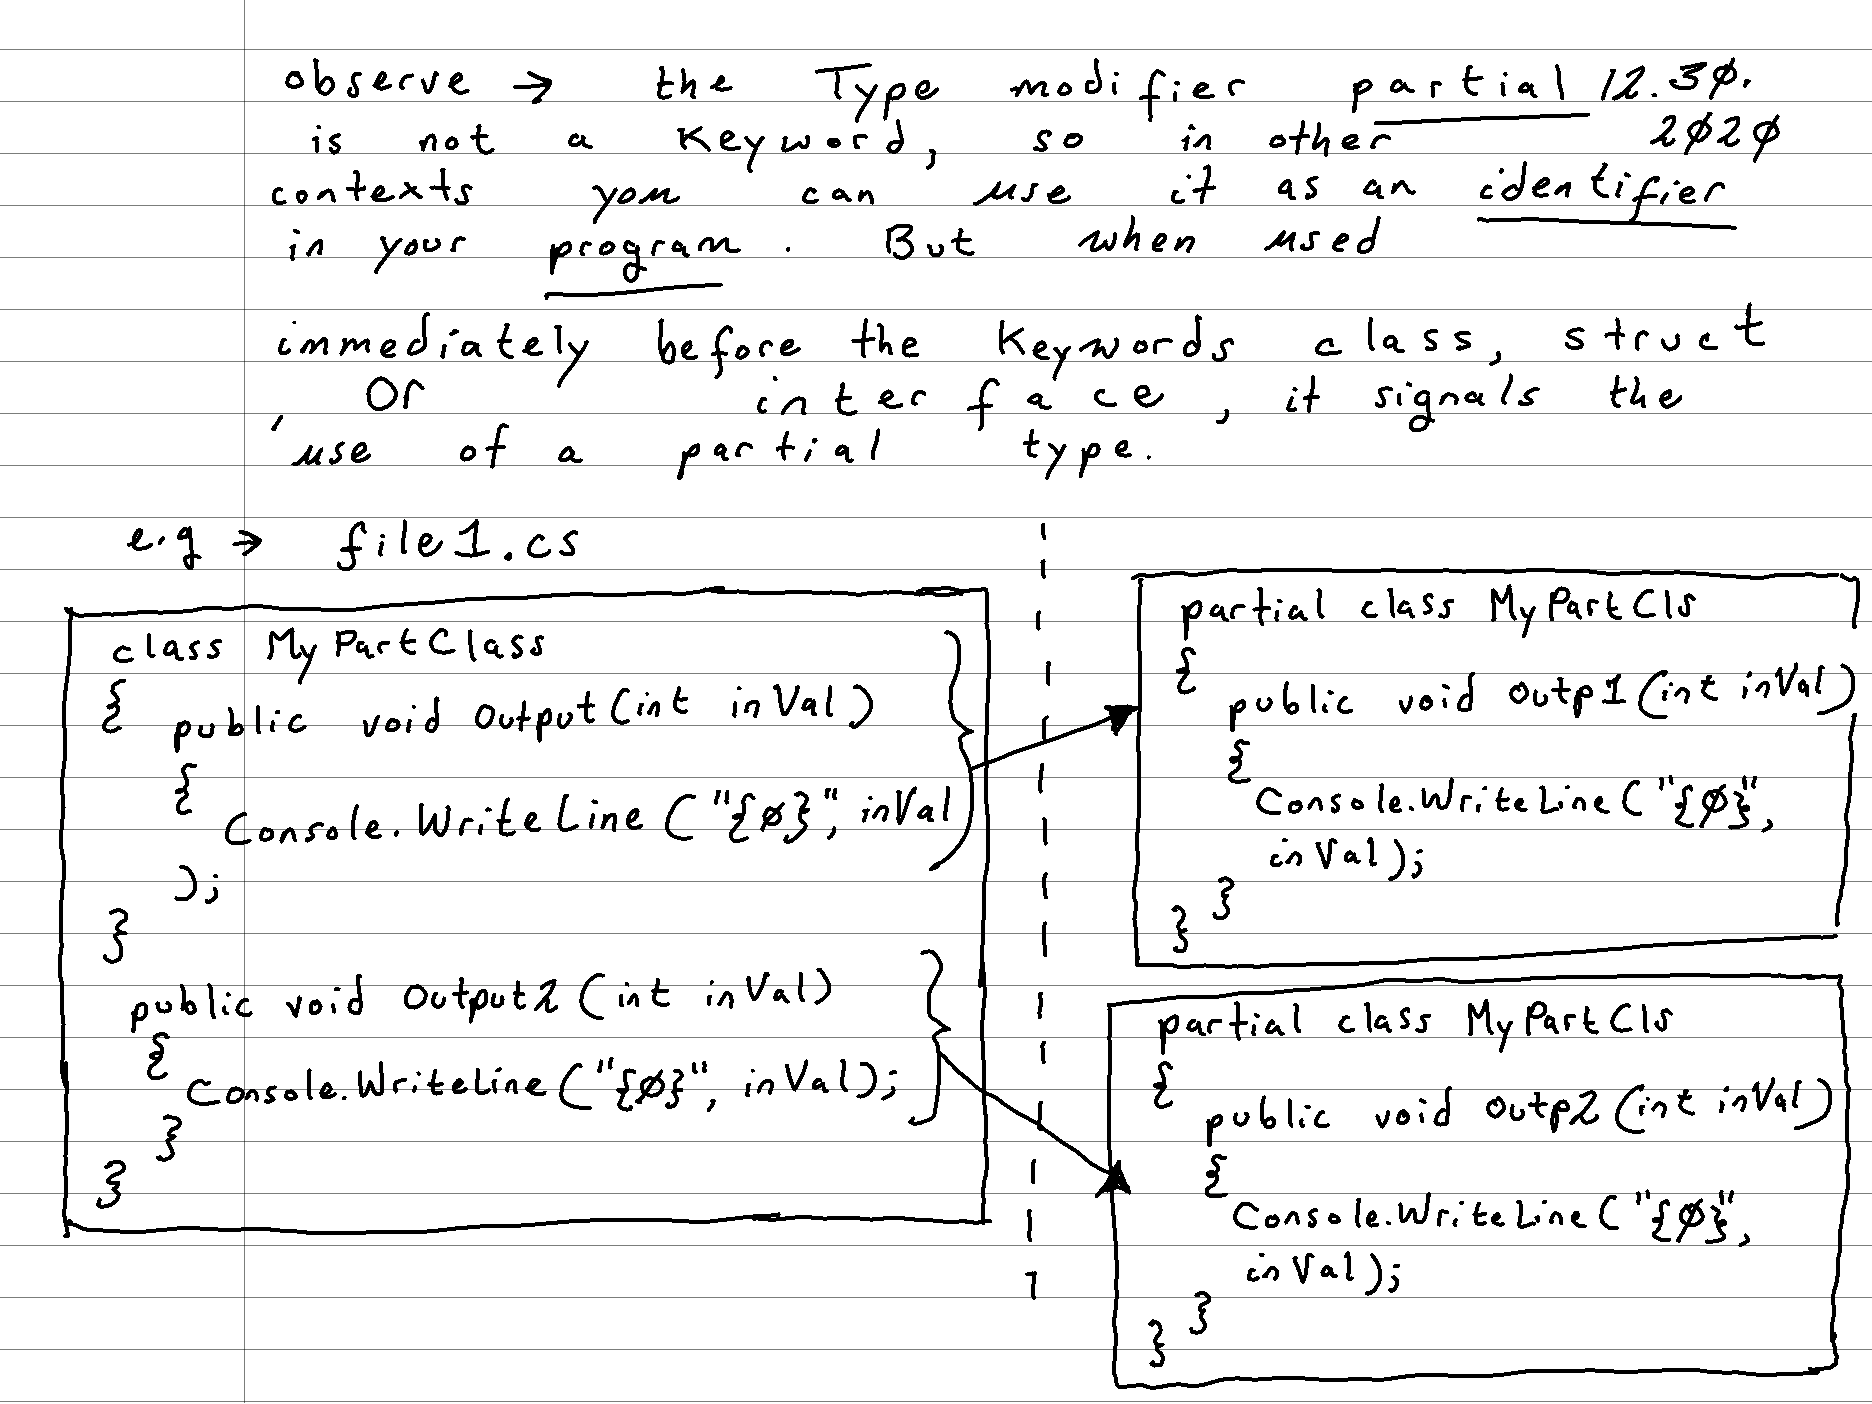 observe → the Type modifier partial 12.3∅.
is not a Keyword, so in other 2∅2∅
contexts you can use it as an identifier
in your program. But when used
immediately before the Keywords class, struct
Or interface, it signals the
use of a partial type.
e.g → file1.cs
class MyPartClass
{ public void Output(int inVal)
{
Console.WriteLine("{∅}", inVal
);
}
public void Output2(int inVal)
{
Console.WriteLine("{∅}", inVal);
}
}
partial class MyPartCls
{
public void Outp1(int inVal)
{
Console.WriteLine("{∅}",
inVal);
}
}
partial class MyPartCls
{
public void Outp2(int inVal)
{
Console.WriteLine("{∅}",
inVal);
}
}